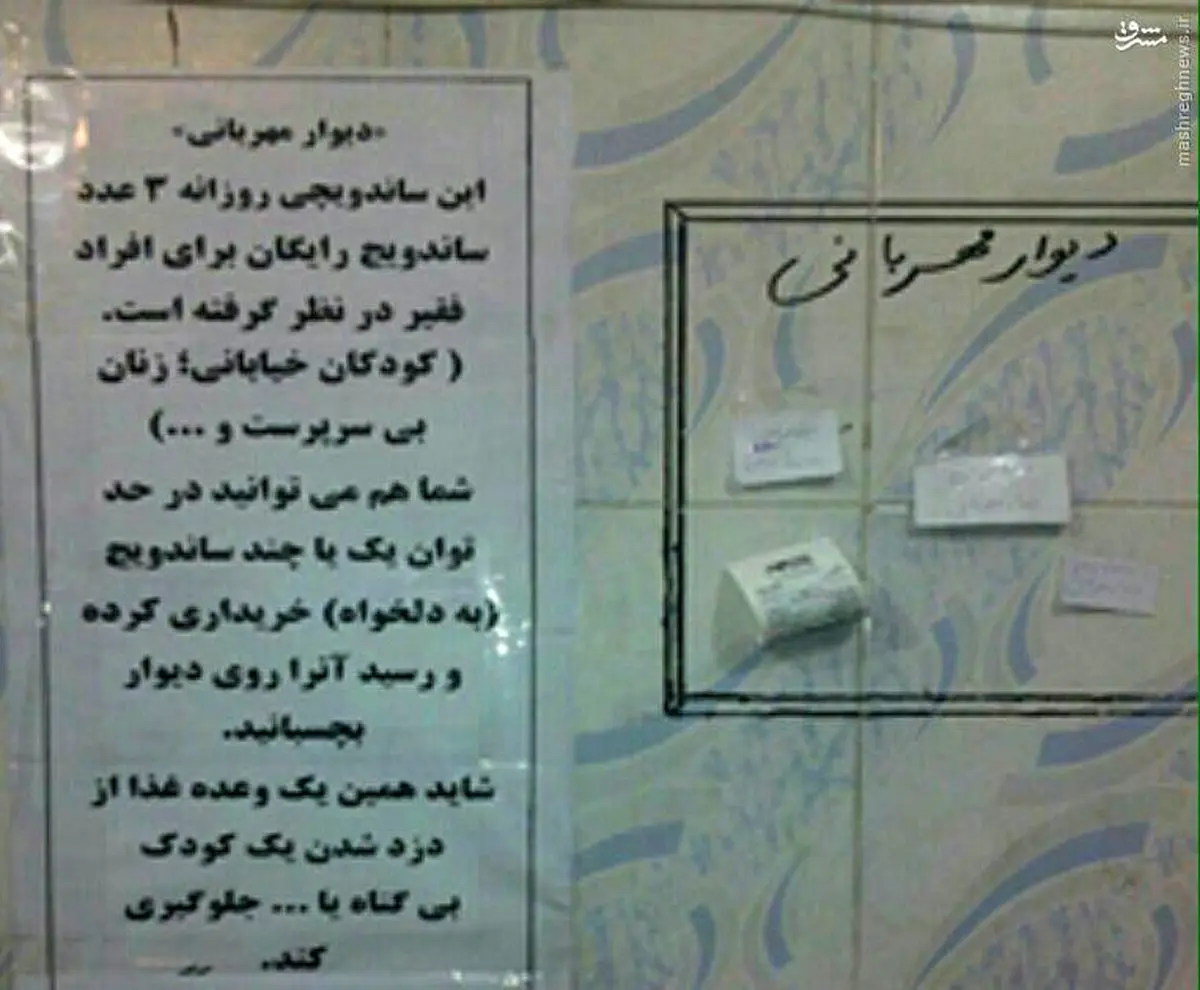 «دیوار مهربانی»
این ساندویچی روزانه ۳ عدد
ساندویچ رایگان برای افراد
فقیر در نظر گرفته است.
( کودکان خیابانی؛ زنان
بی سرپرست و ...)
شما هم می توانید در حد
توان یک یا چند ساندویچ
(به دلخواه) خریداری کرده
و رسید آنرا روی دیوار
بچسبانید.
شاید همین یک وعده غذا از
دزد شدن یک کودک
بی گناه یا ... جلوگیری
کند.
دیوار مهربانی
مشرق
mashreghnews.ir